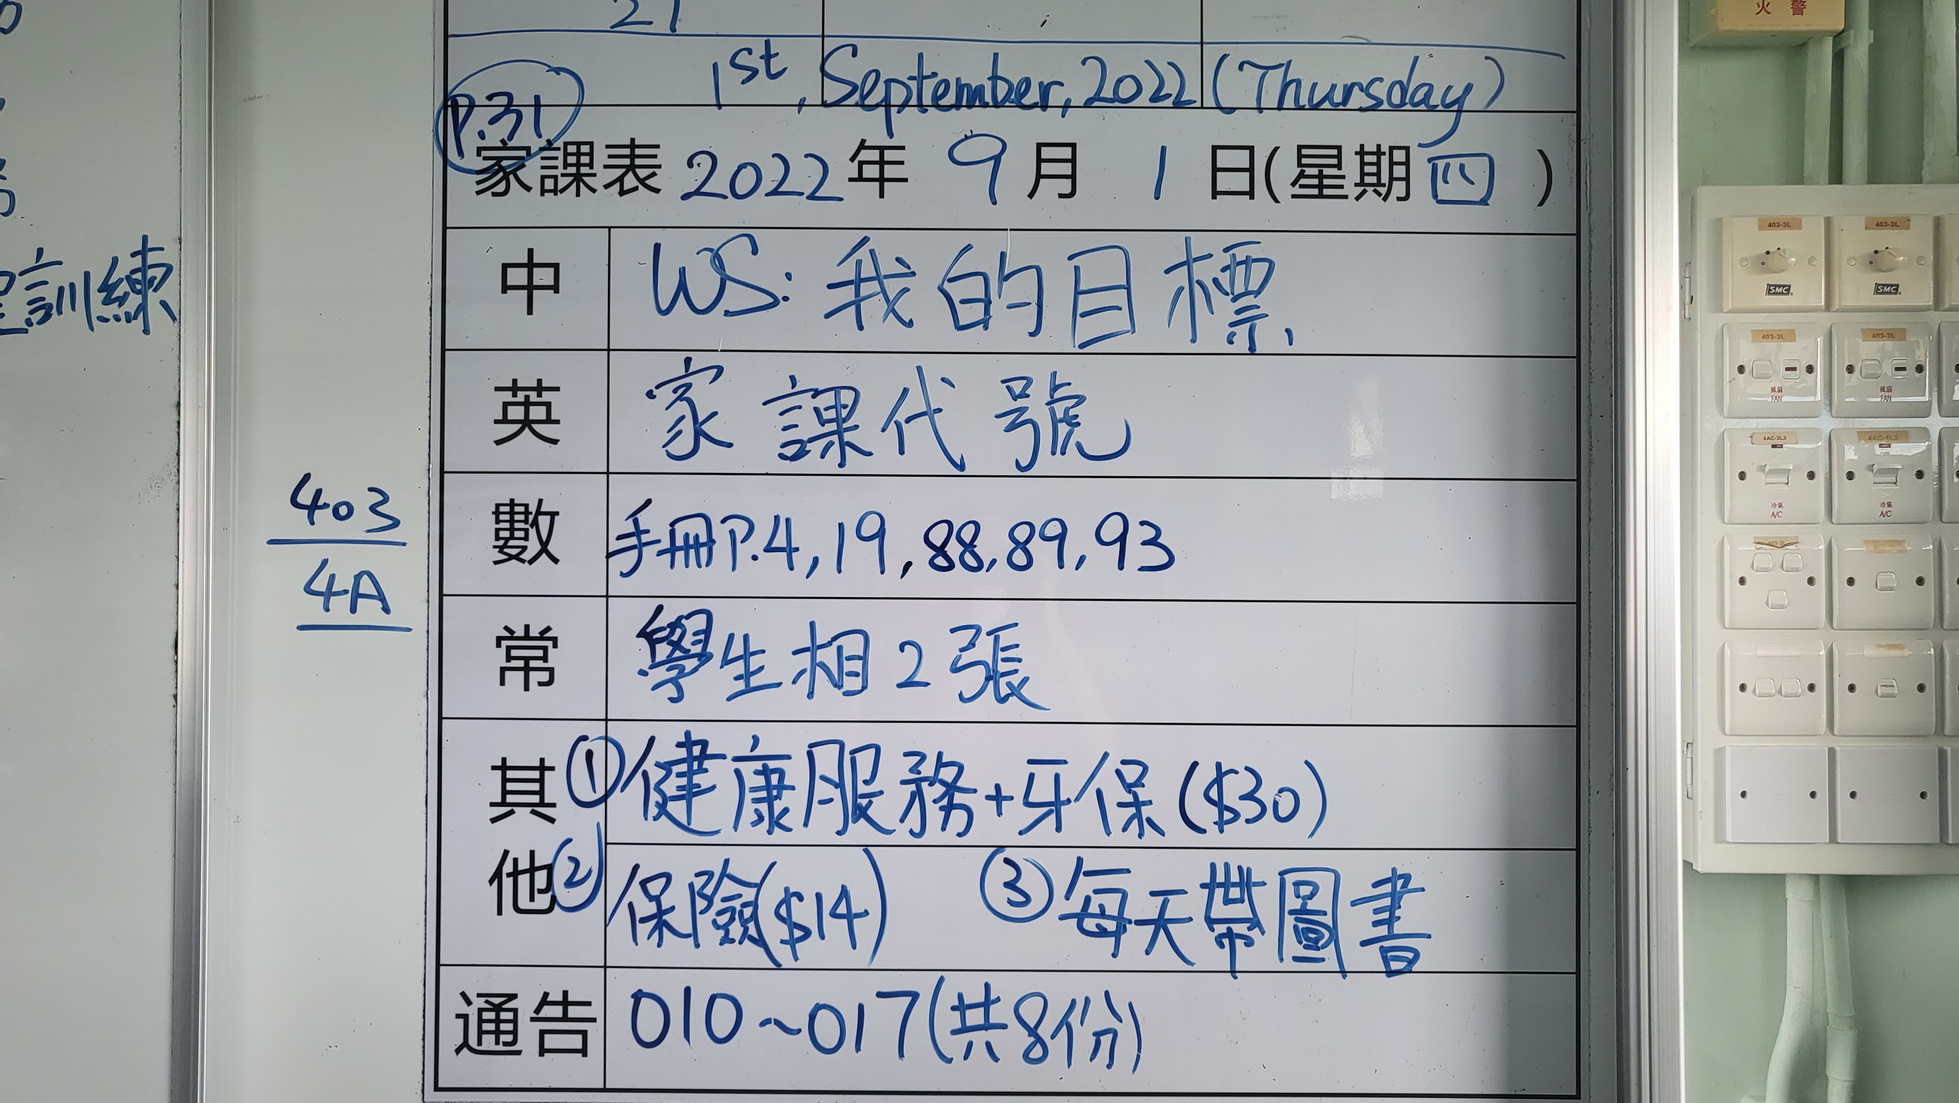 21
1st, September, 2022 (Thursday)
P.31
家課表 2022 年 9 月 1 日(星期 四 )
中 WS: 我的目標
英 家課代號
數 手冊P.4, 19, 88, 89, 93
常 學生相2張
其他 ①健康服務+牙保($30)
②保險($14) ③每天帶圖書
通告 010~017(共8份)
訓練
403
4A
火警
403-3L 403-3L
SMC SMC
403-3L 403-3L
風扇 FAN 風扇 FAN
冷氣 A/C 冷氣 A/C